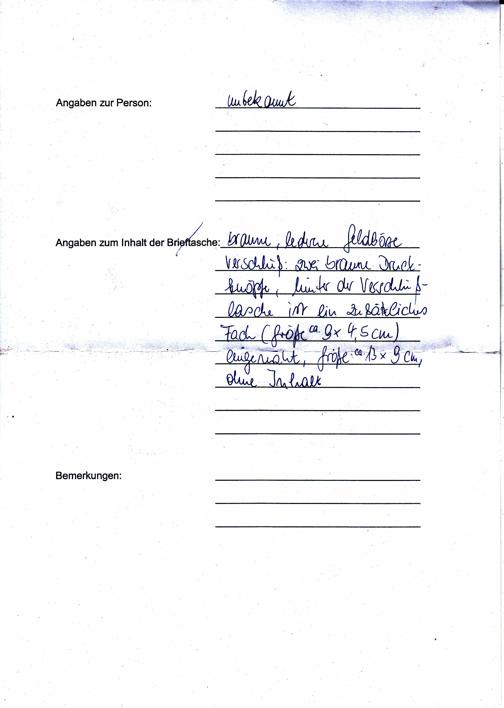 Angaben zur Person: unbekannt
Angaben zum Inhalt der Brieftasche: braune, lederne Geldbörse
Verschluß: zwei braune Druck-
knöpfe, hinter der Verschluß-
lasche ist ein zusätzliches
Fach (Größe ca. 9 x 4,5 cm)
eingenäht, Größe: ca. 13 x 9 cm,
ohne Inhalt
Bemerkungen: